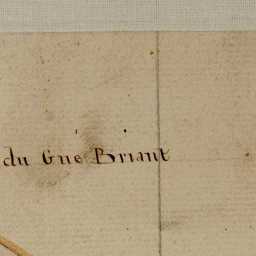 du Gué Briant